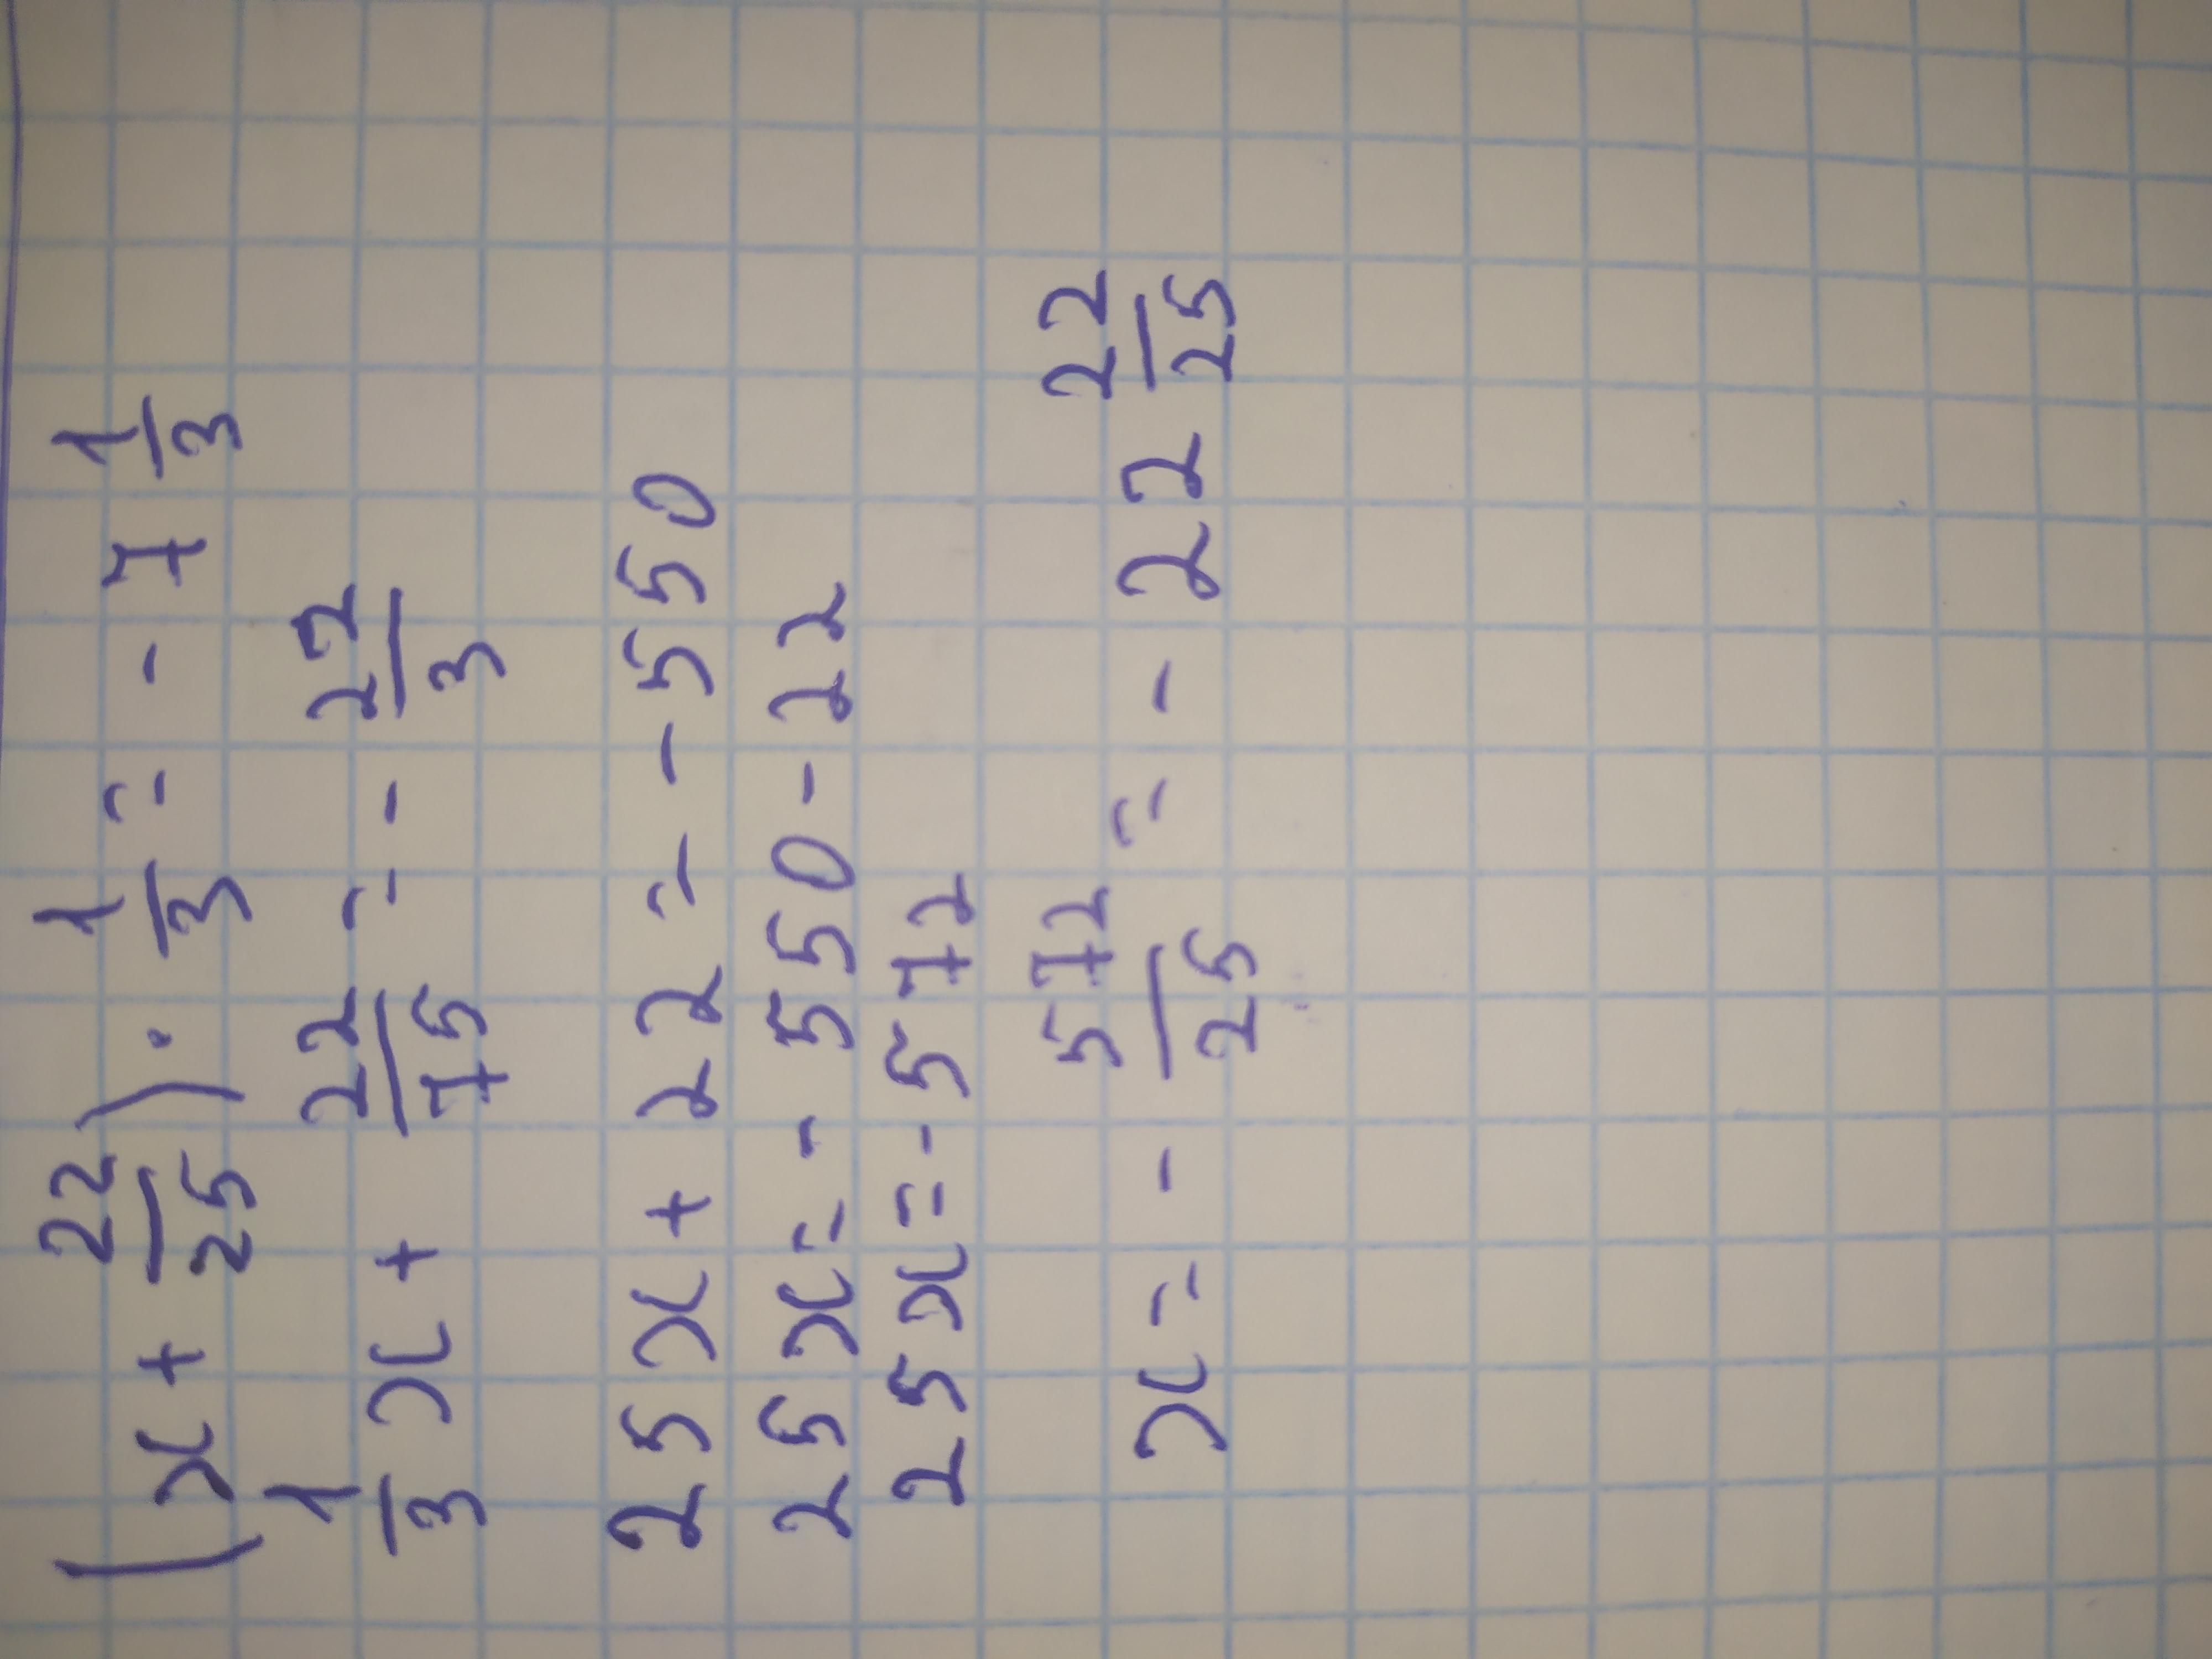 (x + 22/25) · 1/3 = - 7 1/3
1/3 x + 22/75 = - 22/3
25x + 22 = - 550
25x = - 550 - 22
25x = - 572
x = - 572/25 = - 22 22/25